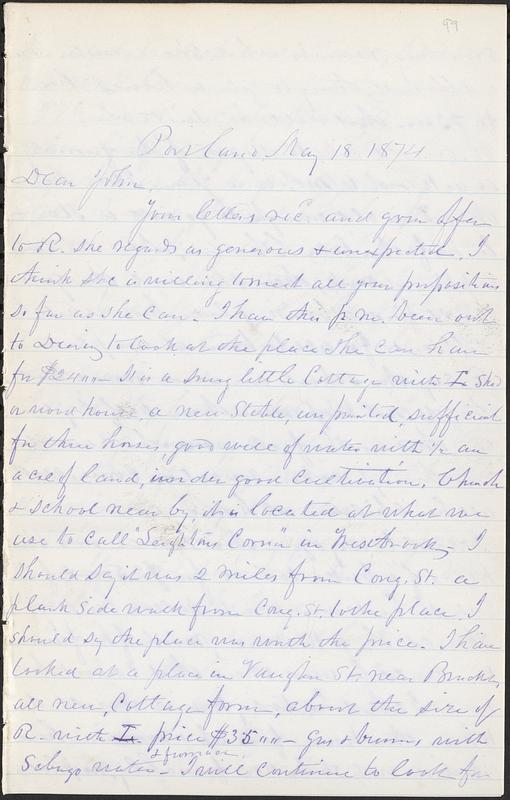 99
Portland, May 18 1874
Dear John,
Your letters rec'd and your offer
to R. she regards as generous & unexpected, I
think she is willing to meet all your propositions
so far as she can. I have this p.m. been out
to Deering to look at the place She can have
for $24"" - It is a snug little Cottage with L Shed
or wood house, a new Stable, unpainted, sufficient
for three horses, good well of water with 1/2 an
acre of land, under good cultivation, Church
& School near by, it is located at what we
use to call "Leightons Corner" in Westbrook, - I
should say it was 2 miles from Cong. St. a
plank side walk from Cong. St. to the place, I
should say the place was worth the price. I have
looked at a place in Vaughn St. near
all new, Cottage form, about the size of
R. with L price $35"" - Gas & with
& furnace,
Sebago water - I will continue to look for